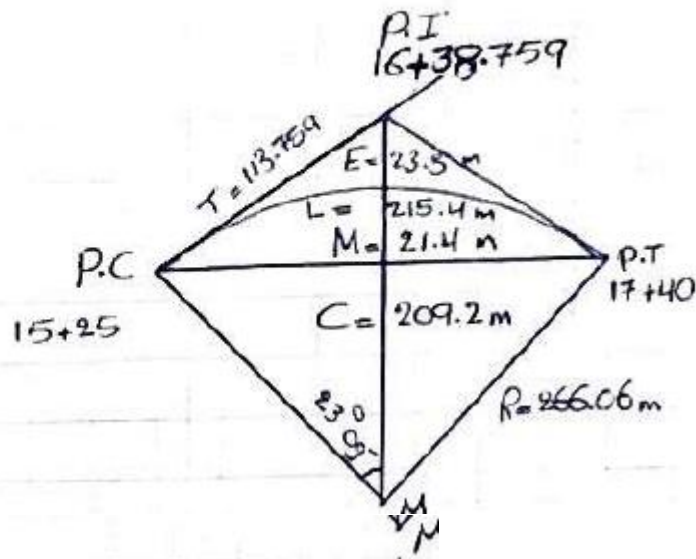 P.I
16+38.759
T=113.759
E=23.5 m
L=215.4 m
M=21.4 m
P.C
P.T
15+25
17+40
C=209.2m
R=266.06m
23°
M